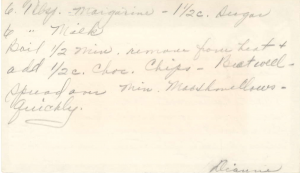 6 Tbsp. Margarine - 1½c. Sugar
6 " Milk
Boil 1/2 Min. remove from heat &
add 1/2c. Choc. Chips - Beat well -
Spread over Min. Marshmallows -
Quickly.
Dianne